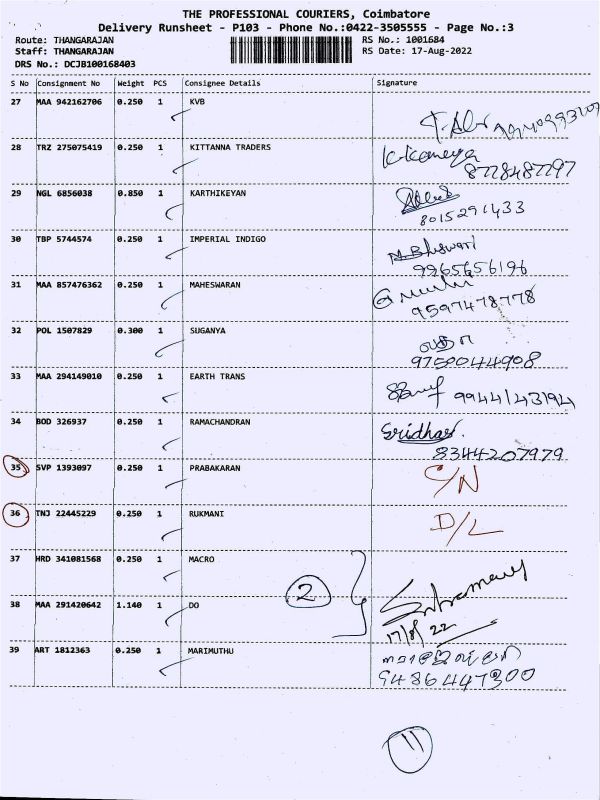 THE PROFESSIONAL COURIERS, Coimbatore
Delivery Runsheet - P103 - Phone No.:0422-3505555 - Page No.:3
Route: THANGARAJAN RS No.: 1001684
Staff: THANGARAJAN RS Date: 17-Aug-2022
DRS No.: DCJB100168403
S No Consignment No Weight PCS Consignee Details Signature
27 MAA 942162706 0.250 1 KVB
28 TRZ 275075419 0.250 1 KITTANNA TRADERS
8778487797
29 NGL 6856038 0.850 1 KARTHIKEYAN
8015291433
30 TBP 5744574 0.250 1 IMPERIAL INDIGO
9965656196
31 MAA 857476362 0.250 1 MAHESWARAN
9597478778
32 POL 1507829 0.300 1 SUGANYA
9750044908
33 MAA 294149010 0.250 1 EARTH TRANS 9944143194
34 BOD 326937 0.250 1 RAMACHANDRAN Sridhar.
8344207979
35 SVP 1393097 0.250 1 PRABAKARAN C/N
36 TNJ 22445229 0.250 1 RUKMANI D/L
37 HRD 341081568 0.250 1 MACRO
2
38 MAA 291420642 1.140 1 DO
17/8/22
39 ART 1812363 0.250 1 MARIMUTHU
9486447300
11